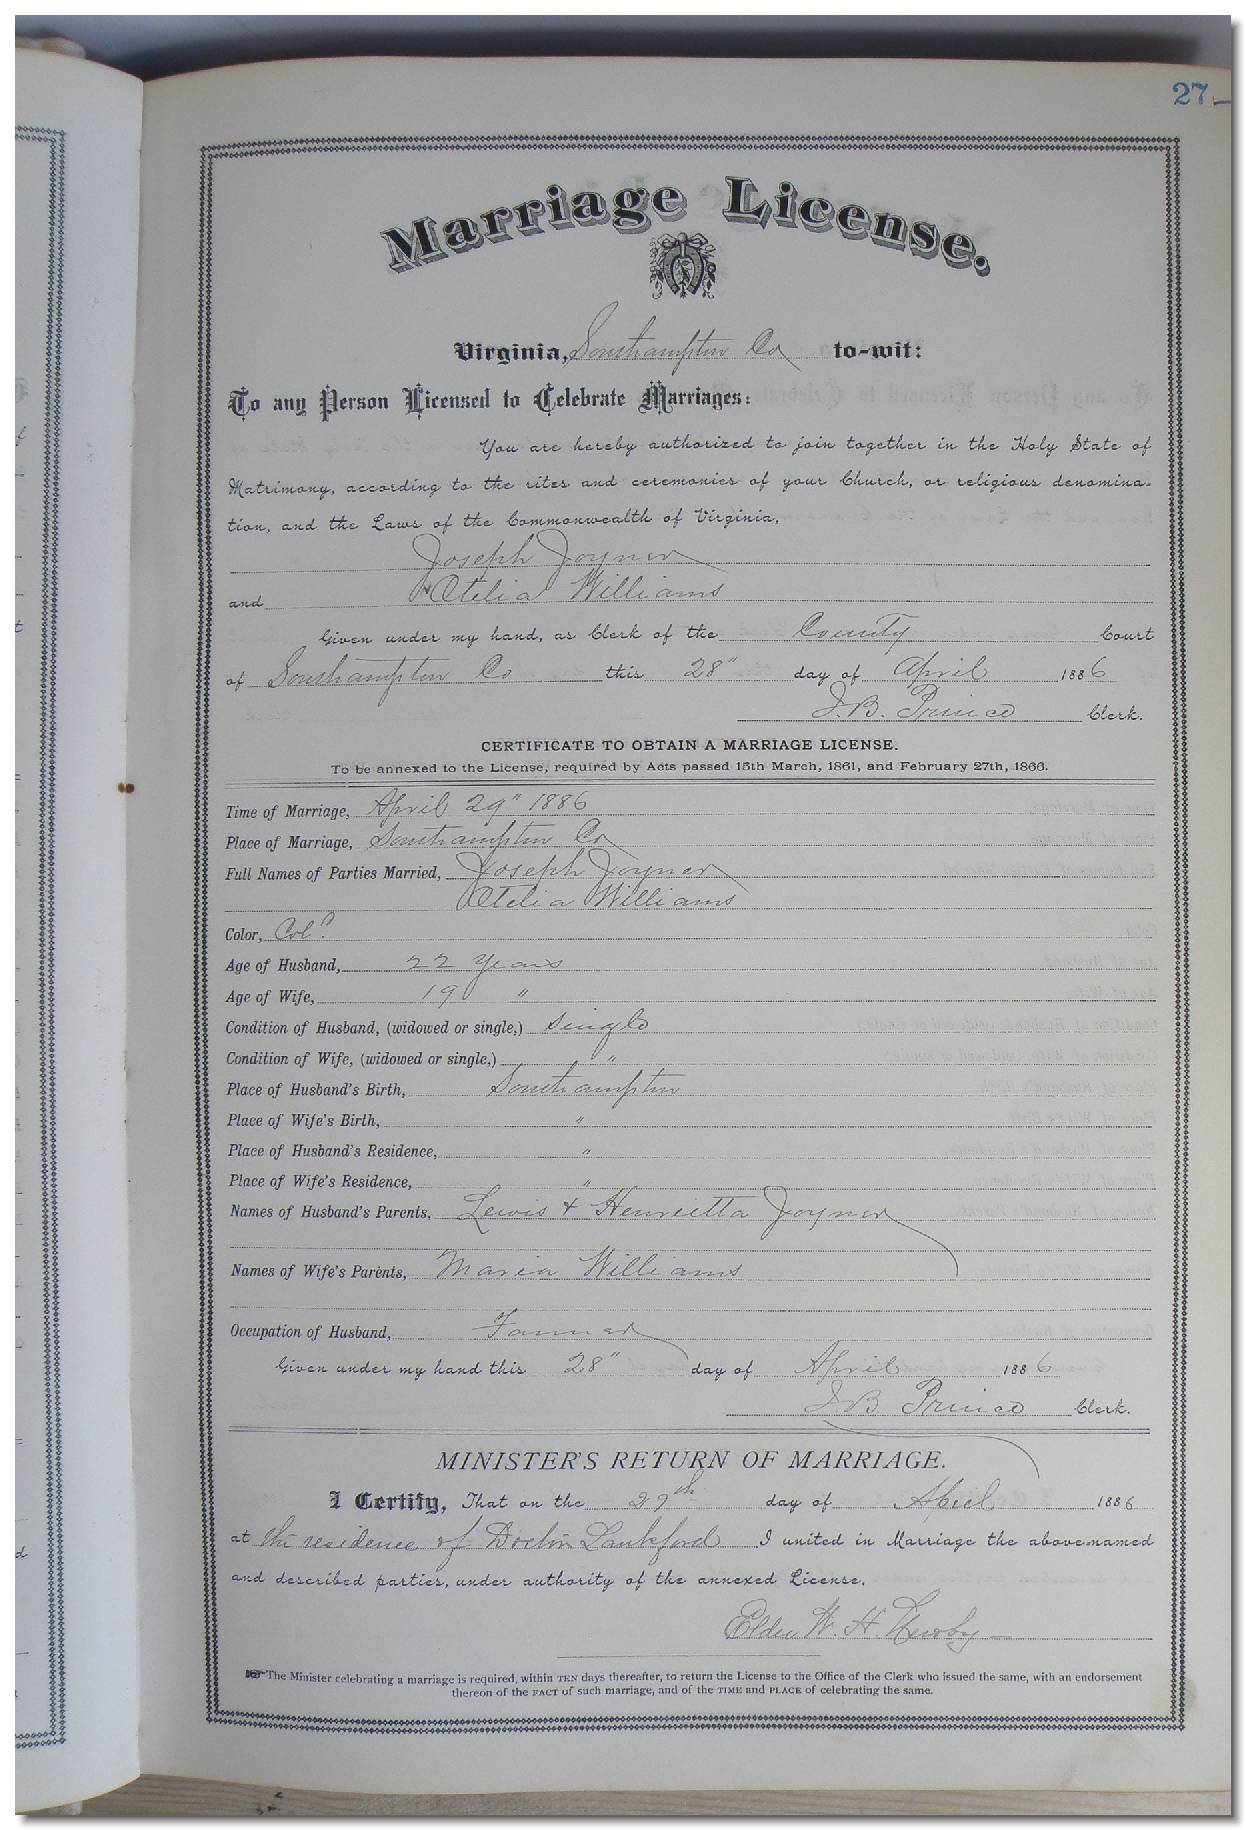 27
Marriage License.
Virginia, Southampton Co to-wit:
To any Person Licensed to Celebrate Marriages:
You are hereby authorized to join together in the Holy State of
Matrimony, according to the rites and ceremonies of your Church, or religious denomina-
tion, and the Laws of the Commonwealth of Virginia,
Joseph Joyner
and Otelia Williams
Given under my hand, as Clerk of the County Court
of Southampton Co this 28" day of April 1886
J.B. Prince Clerk.
CERTIFICATE TO OBTAIN A MARRIAGE LICENSE.
To be annexed to the License, required by Acts passed 15th March, 1861, and February 27th, 1866.
Time of Marriage, April 29" 1886
Place of Marriage, Southampton Co
Full Names of Parties Married, Joseph Joyner
Otelia Williams
Color, Col.d
Age of Husband, 22 years
Age of Wife, 19 "
Condition of Husband, (widowed or single,) Single
Condition of Wife, (widowed or single,) "
Place of Husband's Birth, Southampton
Place of Wife's Birth, "
Place of Husband's Residence, "
Place of Wife's Residence, "
Names of Husband's Parents, Lewis & Henrietta Joyner
Names of Wife's Parents, Maria Williams
Occupation of Husband, Farmer
Given under my hand this 28" day of April 1886
J B Prince Clerk.
MINISTER'S RETURN OF MARRIAGE.
I Certify, That on the 29th day of April 1886
at the residence of Doctor Lankford I united in Marriage the above-named
and described parties, under authority of the annexed License.
Elder W. H. Newby
The Minister celebrating a marriage is required, within TEN days thereafter, to return the License to the Office of the Clerk who issued the same, with an endorsement
thereon of the FACT of such marriage, and of the TIME and PLACE of celebrating the same.